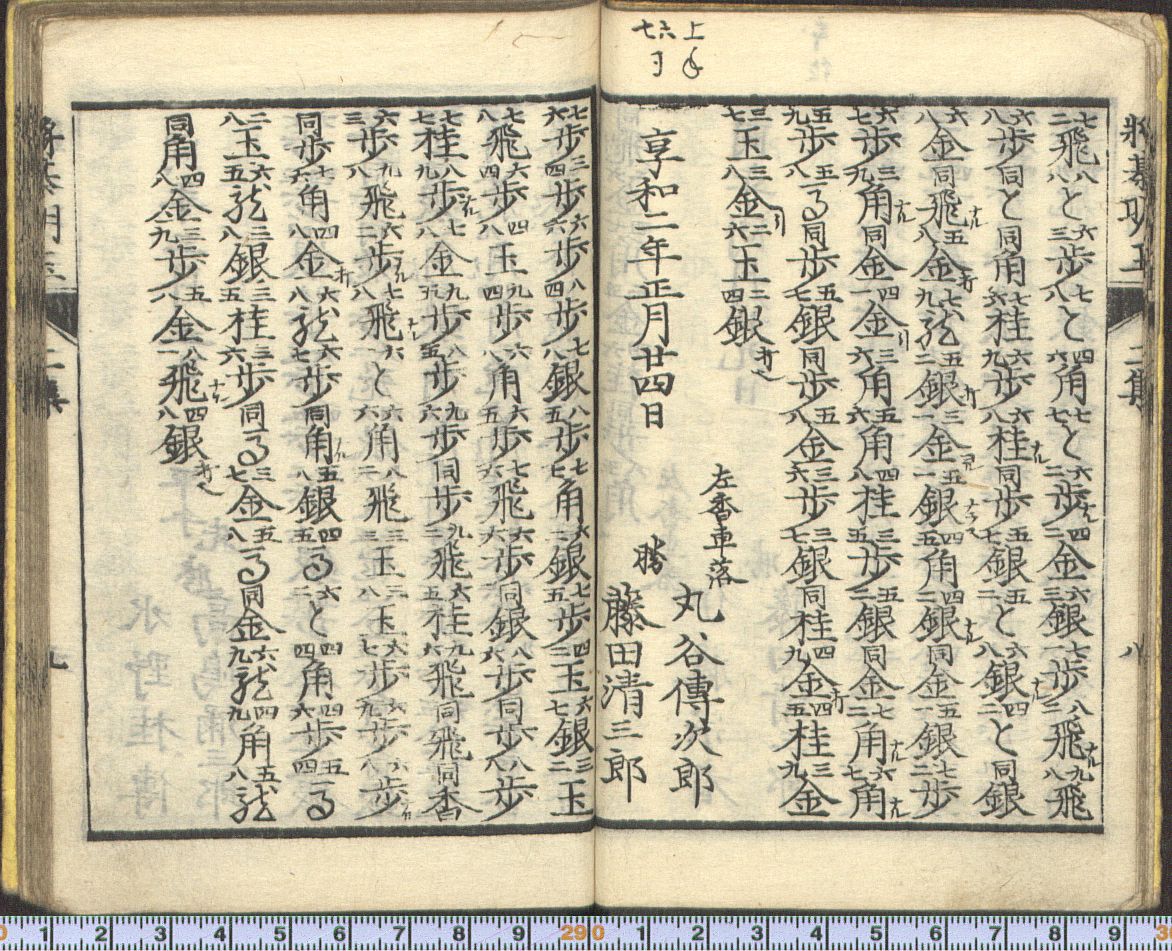 上手
六七
将棊明玉 二集 八
七二飛八八と六三歩七八と四六角七七と六二歩ナル四二金六三銀一一歩八二飛ナル九八飛
六八歩同と同角七六桂六九歩六八桂ナル同歩五七銀五二と六八銀ナル四二と同銀
六八金同飛ナル五八金打七九龍五二銀打三一金引五二銀ナラス四五角四二銀ナル同金五一銀七二歩
六七歩三九角ナル同金四一金引三六角五六角四八桂三五歩五二銀同金七二角ナル六七角ナル
五九歩五八馬同歩五七銀同歩五八金三六歩三七銀同桂四九金打四五桂三九金
三七玉三八金引二六玉二四銀打
享和二年正月廿四日
左香車落 丸谷傳次郎
勝 藤田清三郎
七六歩三四歩六六歩八四歩七八銀八五歩七七角六二銀七五歩四二玉六七銀三二玉
七八飛六四歩四八玉九四歩六八角六五歩七六飛六六歩同銀八六歩同歩八八歩
七七桂八九歩ナル七八金九五歩八五歩九六歩同歩九二飛六五桂九六飛同飛同香
六三歩九八飛六二歩ナル七八飛ナル六一と六六角八二飛三三玉
同歩七六角四八金打六八龍六七歩同角ナル五八銀四五馬六二と四四角四六歩五四馬
二八玉六五龍三八銀三五桂三六歩同馬三七金五八馬同金六九龍四九角五八龍
同角四八金三九歩五八金八一飛ナル四八銀打
二集 九